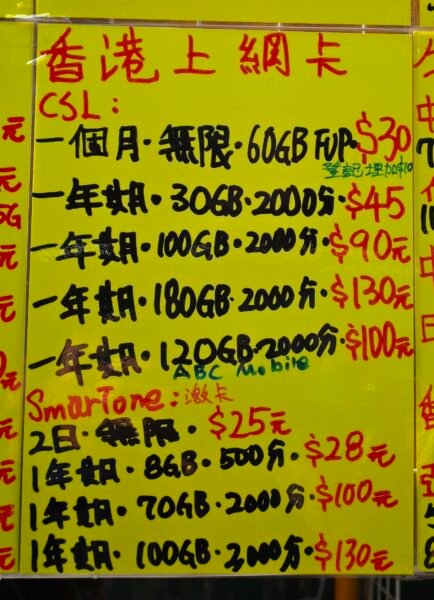 香港上網卡
CSL:
一個月·無限·60GB FUP·$30
登記埋加$10
一年期·30GB·2000分·$45
一年期·100GB·2000分·$90元
一年期·180GB·2000分·$130元
一年期·120GB·2000分·$100元
ABC Mobile
SmarTone:激卡
2日·無限·$25元
1年期·8GB·500分·$28元
1年期·70GB·2000分·$100元
1年期·100GB·2000分·$130元